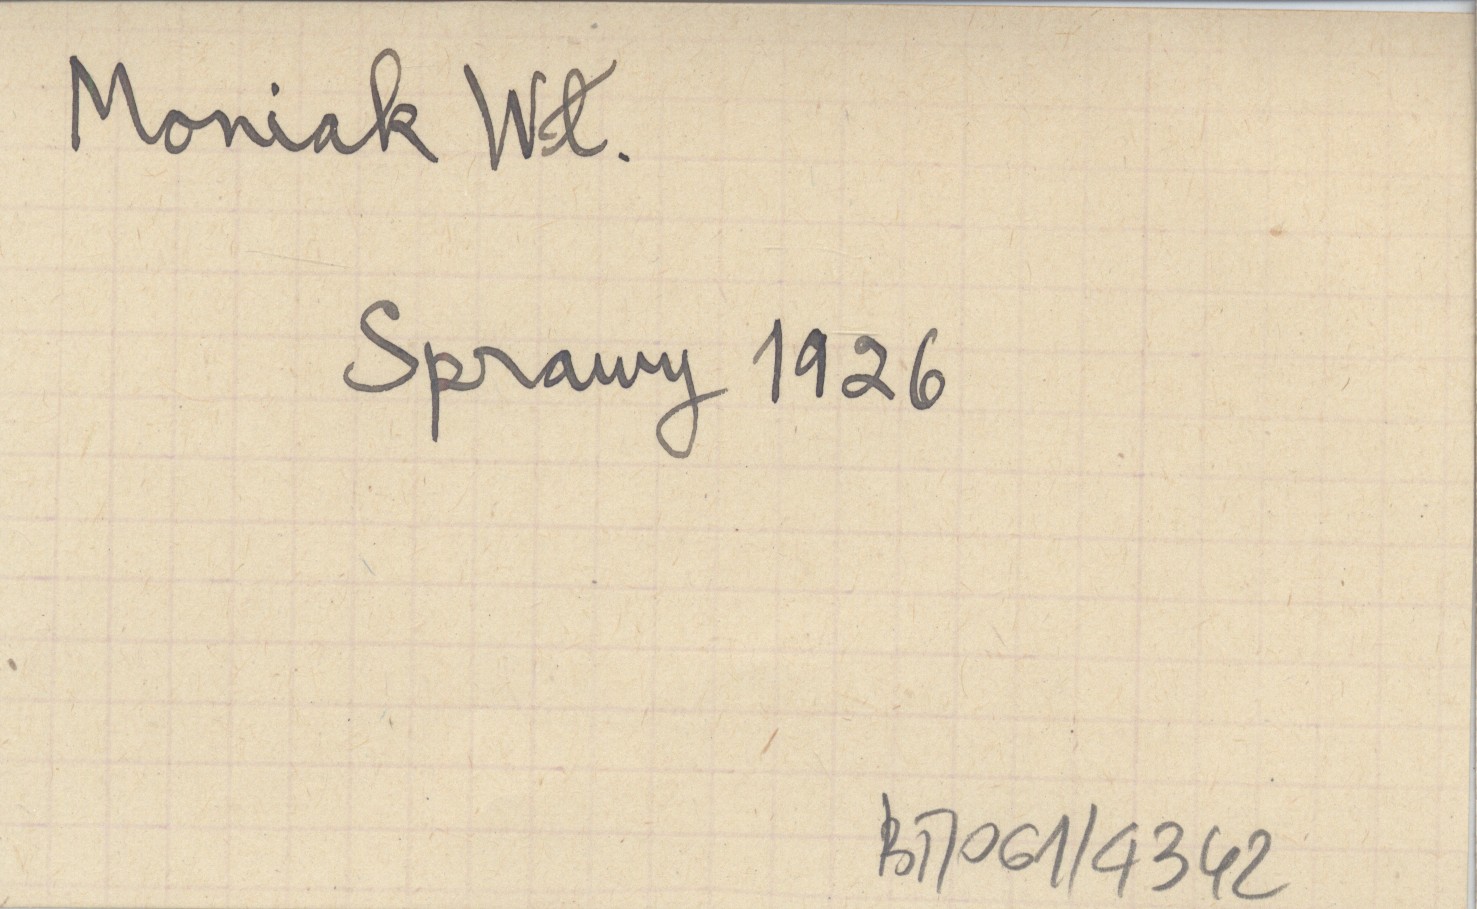 Moniak Wł.
Sprawy 1926
BT/061/4342